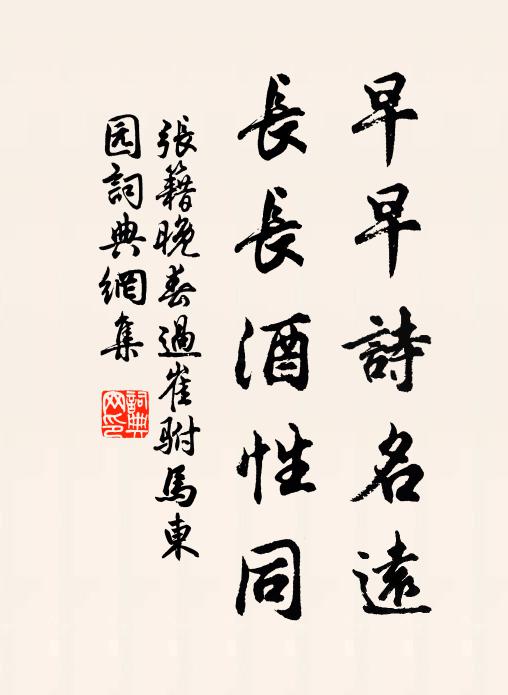 早早詩名遠
長長酒性同
張籍晚春過崔駙馬東
园詞典網集
詞典网印